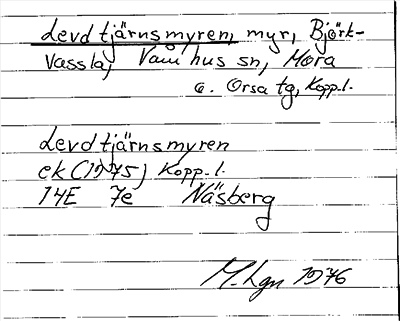 Levdtjärnsmyren, myr, Björk-
vassla, Våmhus sn, Mora
o. Orsa tg, Kopp.l.
Levdtjärnsmyren
ek (1975) Kopp.l.
14E 7e Näsberg
M.Lgn 1976